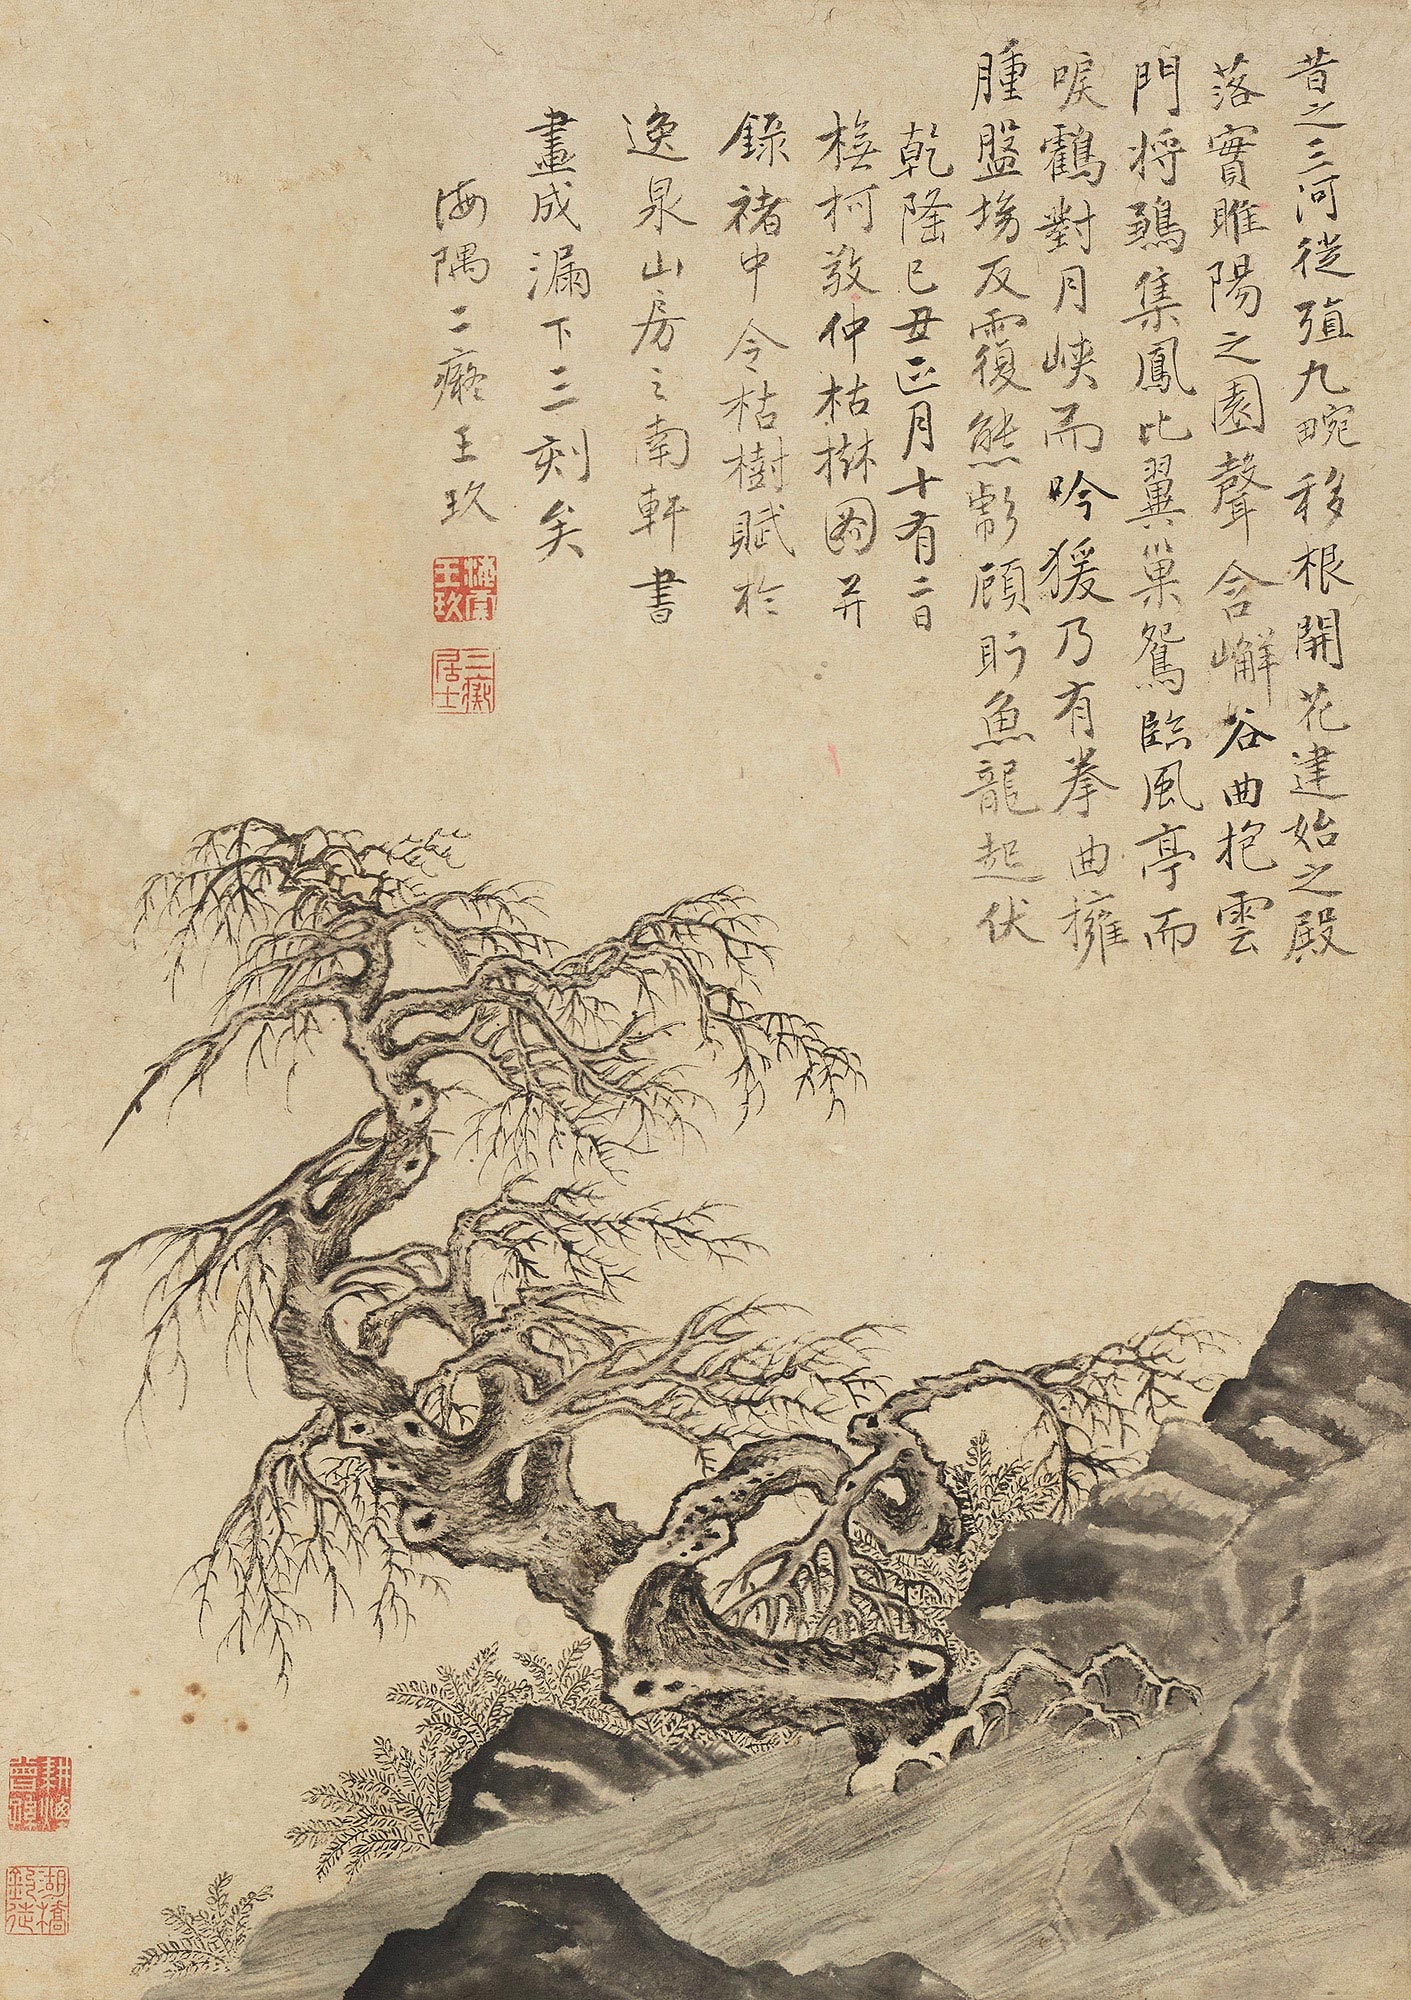 昔之三河徙殖九畹移根開花建始之殿
落實睢陽之園聲含嶰谷曲抱雲
門将鶵集鳳比翼巢鴛臨風亭而
唳鶴對月峽而吟猨乃有拳曲擁
腫盤坳反覆熊彪顧盼魚龍起伏
乾隆己丑正月十有二日
橅柯敬仲枯樹圖并
錄褚中令枯樹賦於
逸泉山房之南軒書
畫成漏下三刻矣
海隅二癡王玖
王玖
二癡居士
湖橋